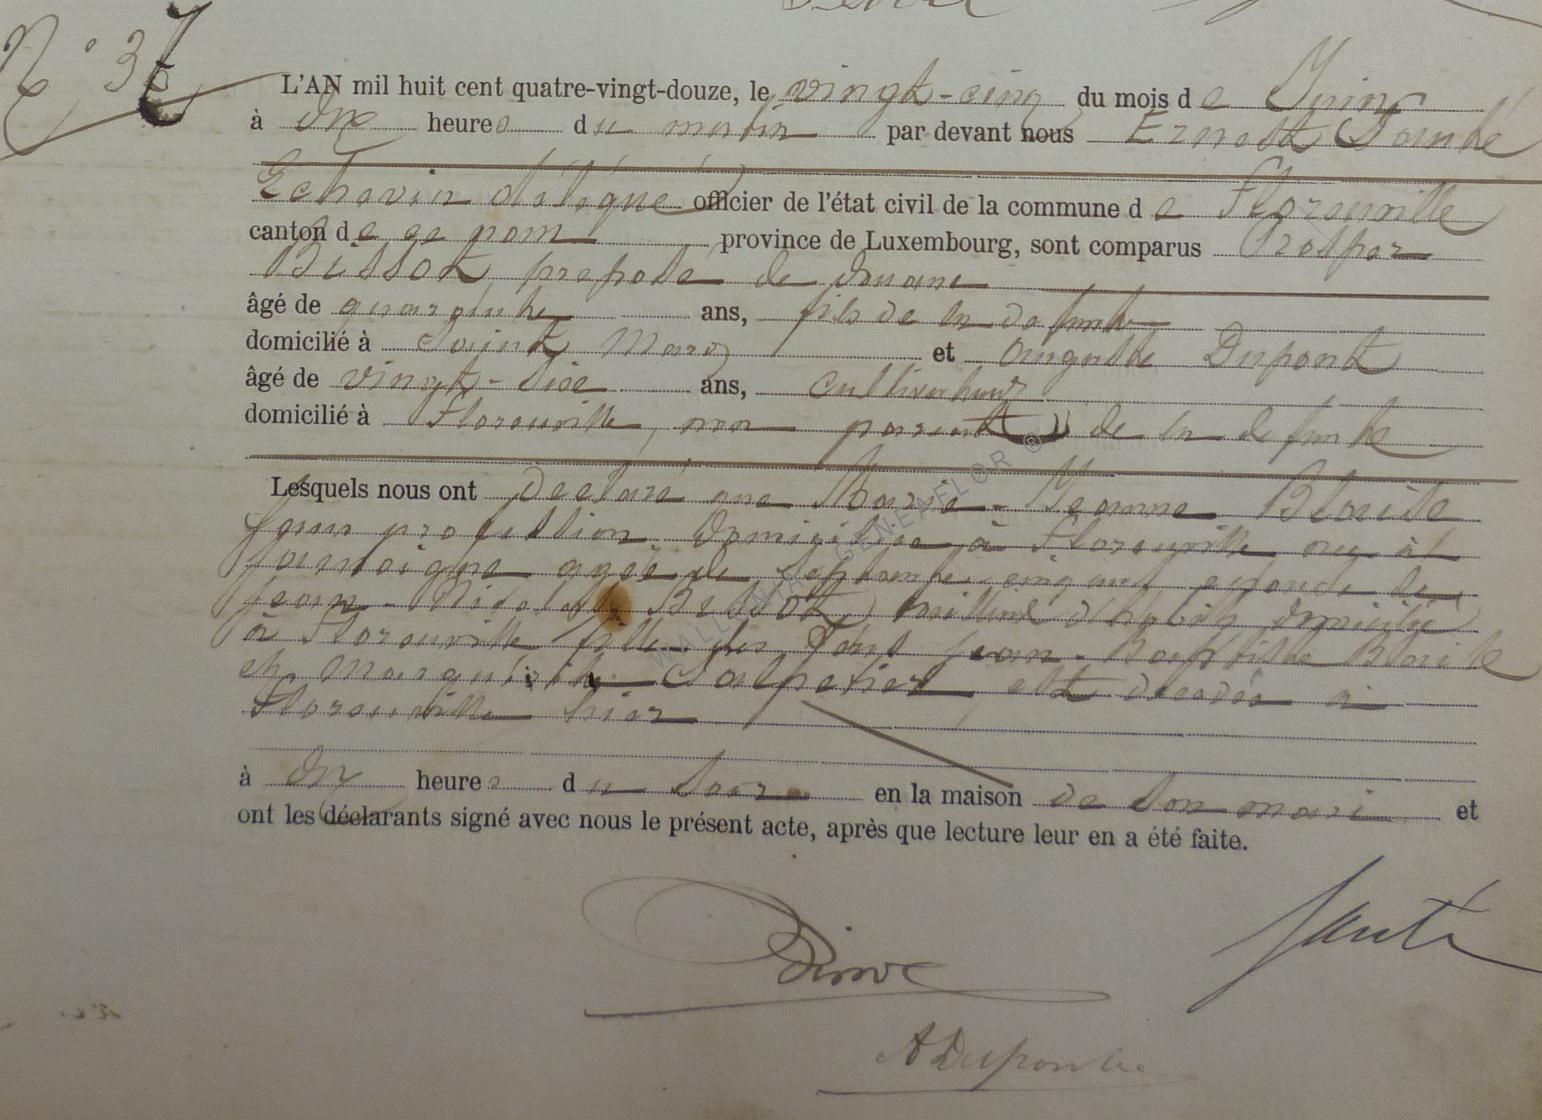 N° 37
L'AN mil huit cent quatre-vingt-douze, le vingt-cinq du mois de Juin
à dix heures du matin par devant nous Ernest Santé
Echevin délégué officier de l'état civil de la commune de Florenville
canton de ce nom province de Luxembourg, sont comparus Prosper
Bissot préposé de douane
âgé de quarante ans, fils de la défunte
domicilié à Saint Mard et Auguste Dupont
âgé de vingt-six ans, cultivateur
domicilié à Florenville, non parent de la defunte
Lesquels nous ont déclaré que Marie-Jeanne Blaise
sans profession, domiciliée à Florenville née à
Jamoigne agée de septante cinq ans épouse de
Jean-Nicolas Bissot, tailleur d'habits domicilié
à Florenville fille des feus Jean-Baptiste Blaise
et Marguerite Salpetier est décédée à
Florenville hier
à dix heures du soir en la maison de son mari et
ont les déclarants signé avec nous le présent acte, après que lecture leur en a été faite.
ADuponte
WALLONIA GENEAFLOR ®